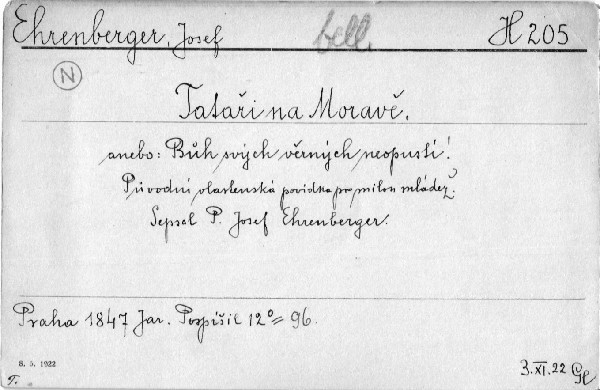 Ehrenberger, Josef bell. H 205
N
Tataři na Moravě,
anebo: Bůh svých věrných neopustí!
Původní vlastenská povídka pro milou mládež.
Sepsal P. Josef Ehrenberger.
Praha 1847 Jar. Pospíšil 12° = 96.
8. 5. 1922 3. XI. 22
T.